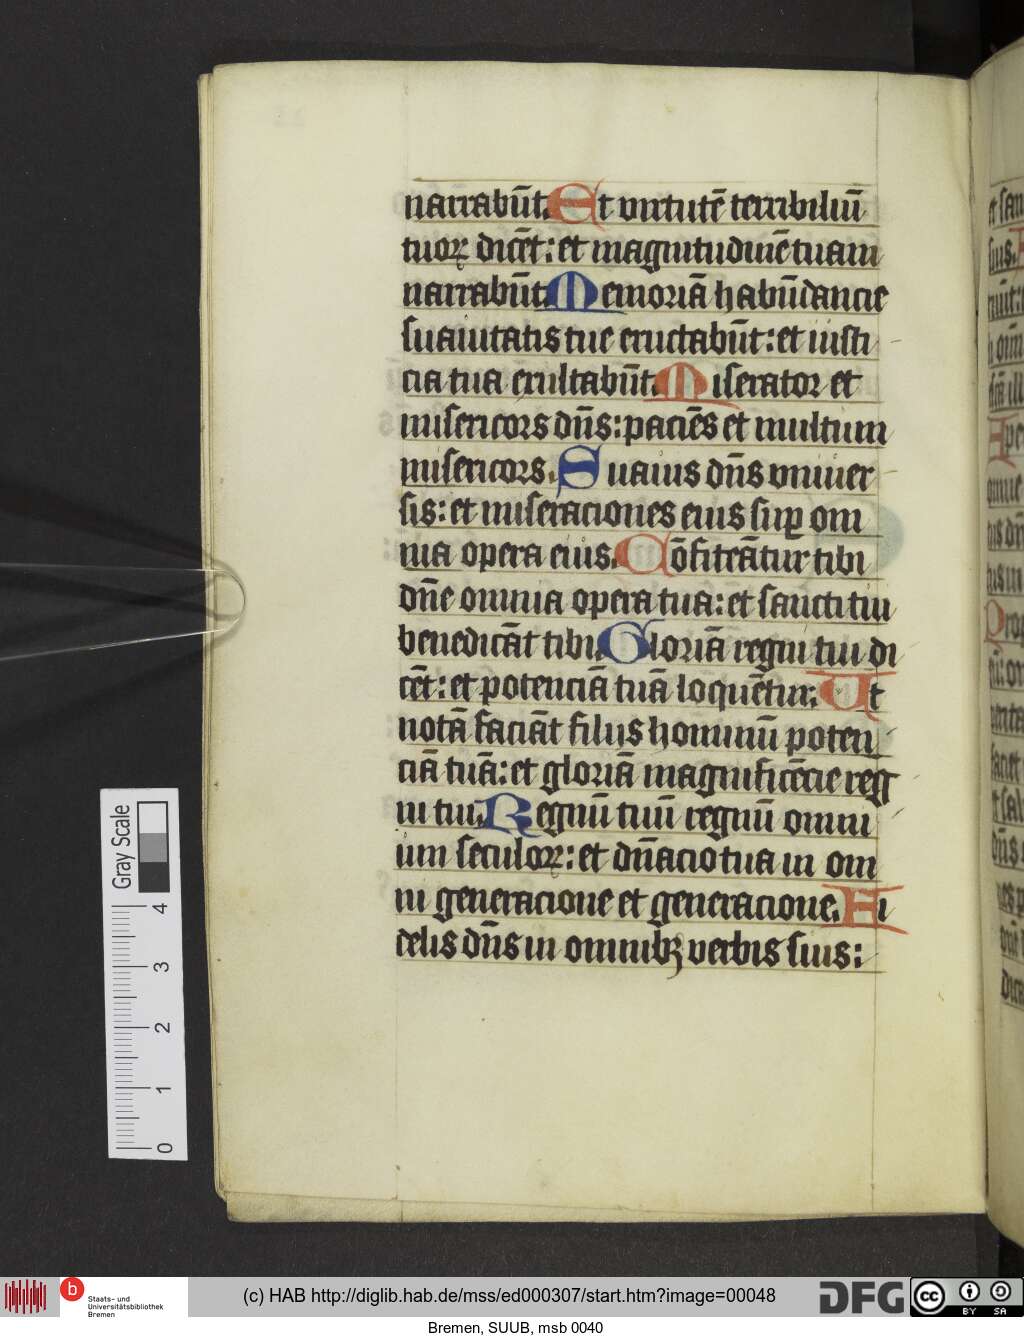 narrabūt. Et virtutē terribiliū
tuoꝝ dicēt: et magnitudinē tuam
narrabūt. Memoriā habūdancie
suauitatis tue eructabūt: et iusti
cia tua exultabūt. Miserator et
misericors dn̄s: paciēs et multum
misericors. Suauis dn̄s vniuer
sis: et miseraciones eius suꝑ om
nia opera eius. Cōfiteātur tibi
dn̄e omnia opera tua: et sancti tui
benedicāt tibi. Gloriā regni tui di
cēt: et potenciā tuā loquētur. Ut
notā faciāt filiis hominū poten
ciā tuā: et gloriā magnificēcie reg
ni tui. Regnū tuū regnū omni
um seculoꝝ: et dn̄acio tua in om
ni generacione et generacione. Fi
delis dn̄s in omnibꝫ verbis suis:
Gray Scale
4
3
2
1
0
b
Staats- und
Universitätsbibliothek
Bremen
(c) HAB http://diglib.hab.de/mss/ed000307/start.htm?image=00048
DFG
cc
BY SA
Bremen, SUUB, msb 0040